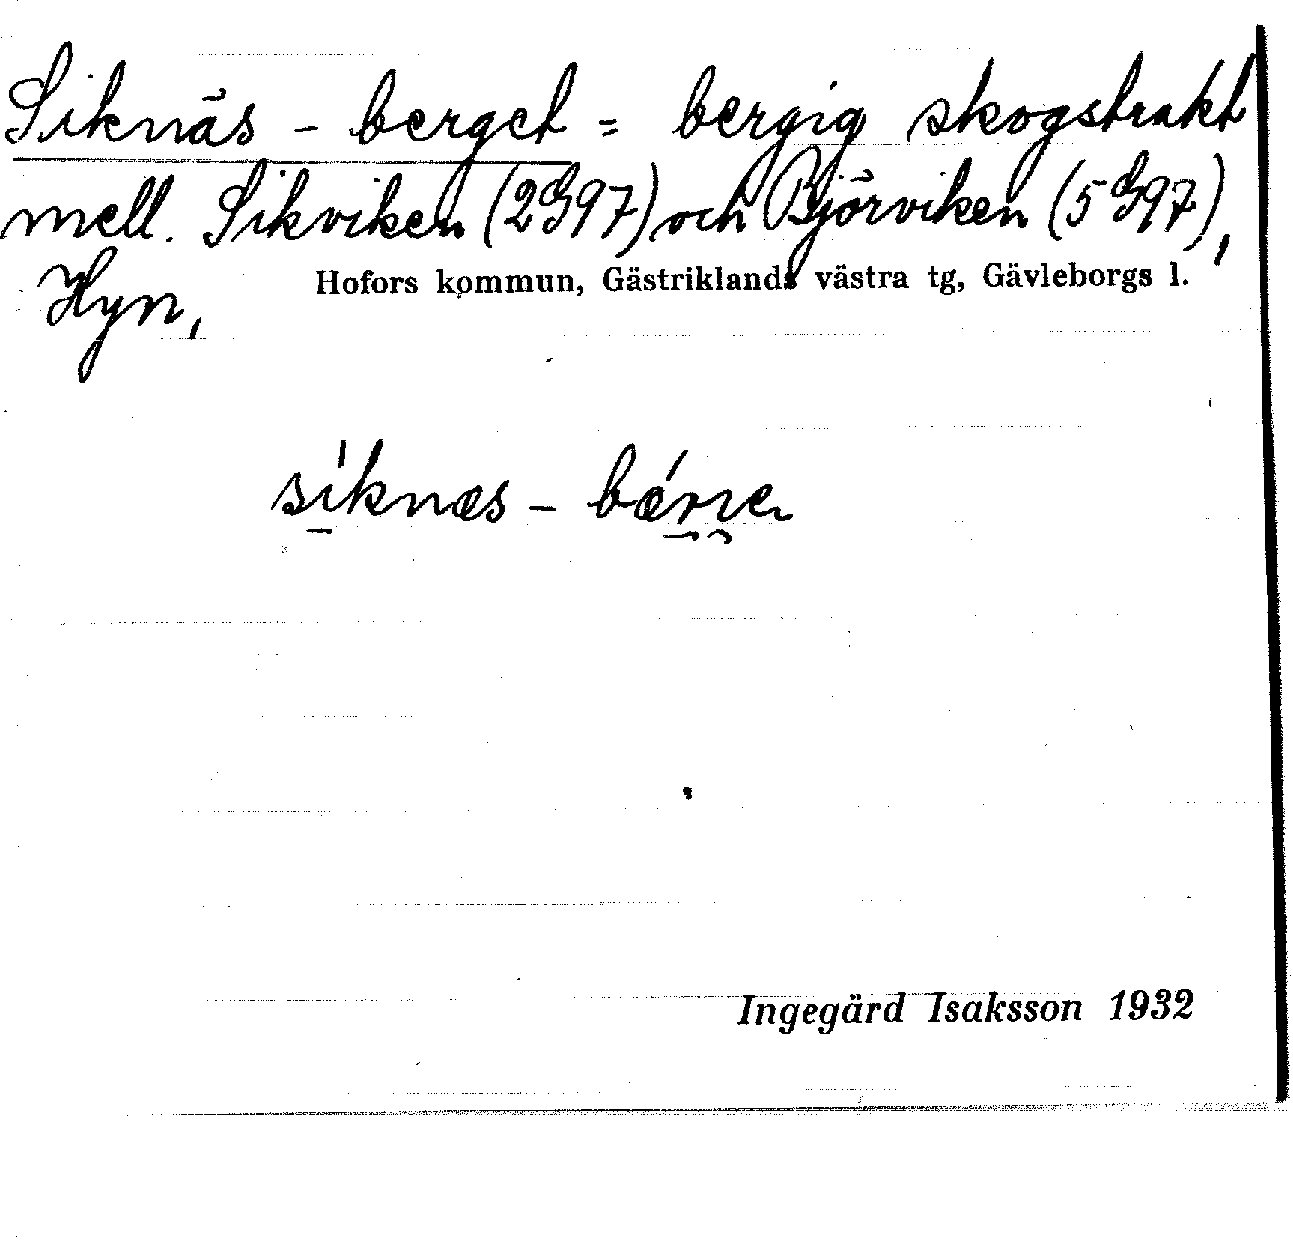 Siknäs - berget = bergig skogstrakt
mell. Sikviken (2G97) och Björviken (5G97),
Hyn,
Hofors kommun, Gästriklands västra tg, Gävleborgs l.
síknæs -
Ingegärd Isaksson 1932